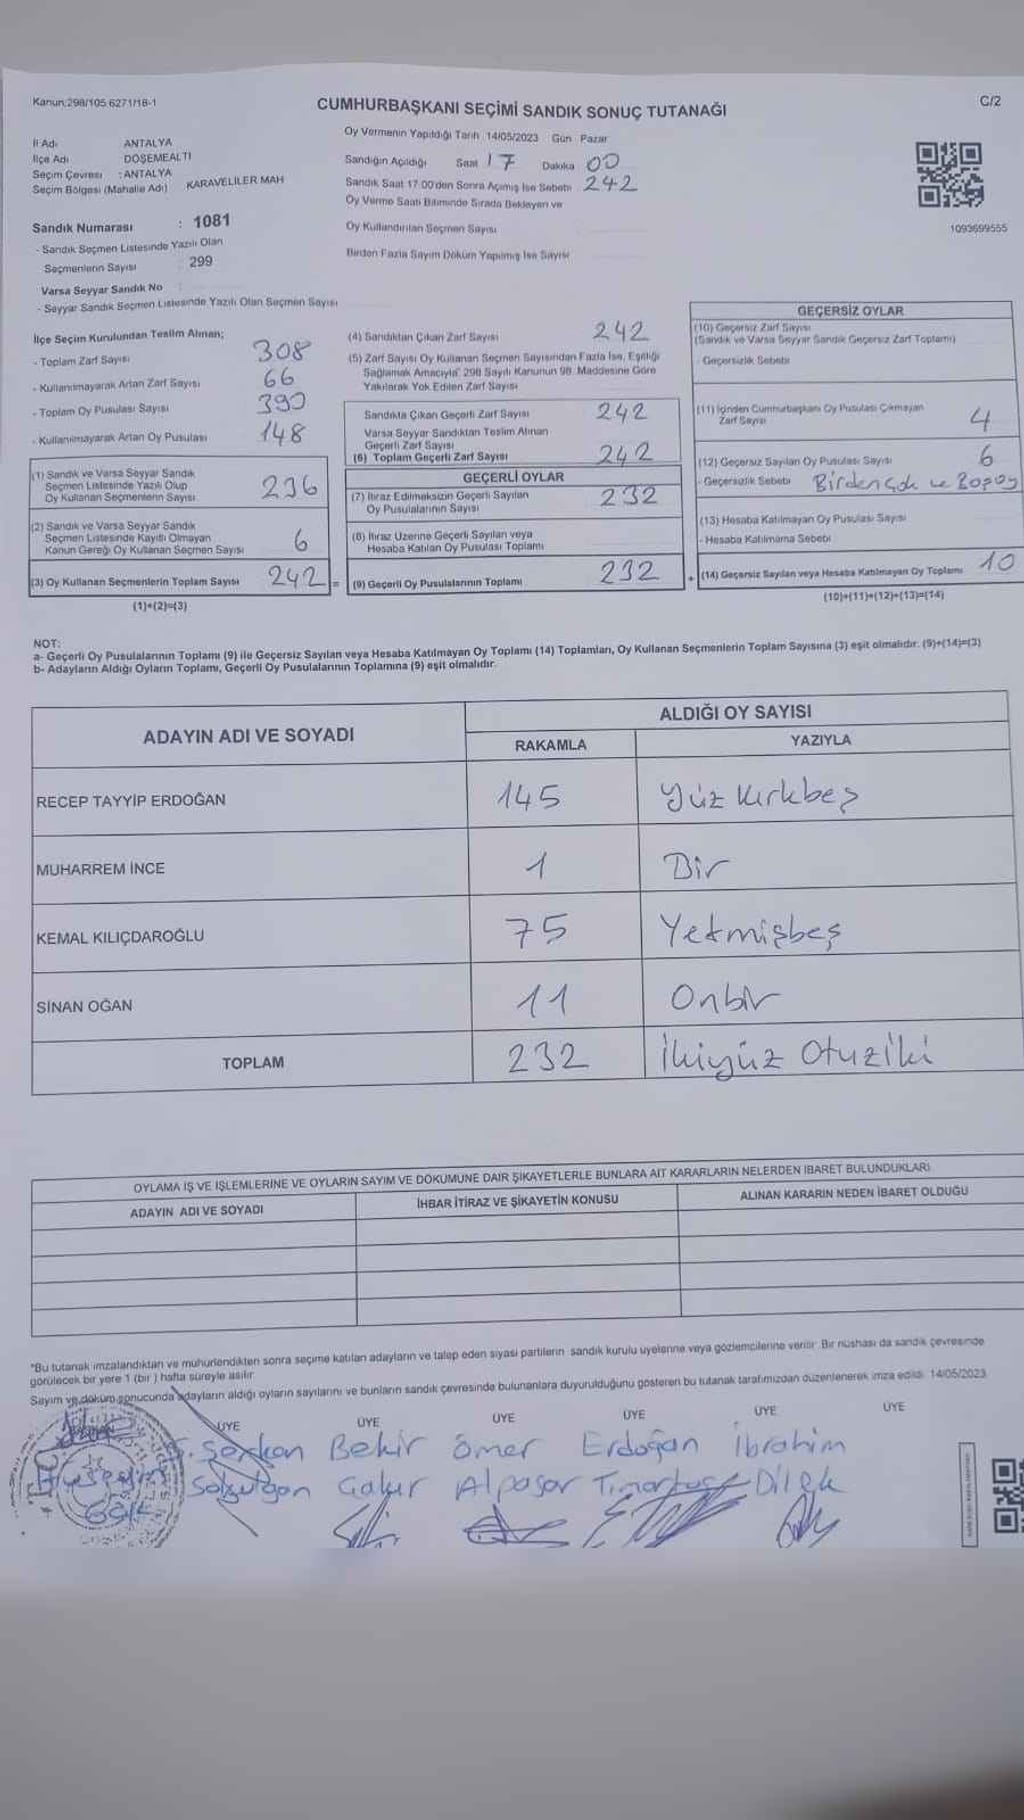 Kanun:298/105 6271/18-1
CUMHURBAŞKANI SEÇİMİ SANDIK SONUÇ TUTANAĞI
C/2
İl Adı ANTALYA
İlçe Adı DÖŞEMEALTI
Seçim Çevresi : ANTALYA
Seçim Bölgesi (Mahalle Adı) KARAVELİLER MAH
Sandık Numarası : 1081
- Sandık Seçmen Listesinde Yazılı Olan
Seçmenlerin Sayısı 299
Varsa Seyyar Sandık No
- Seyyar Sandık Seçmen Listesinde Yazılı Olan Seçmen Sayısı
Oy Vermenin Yapıldığı Tarih 14/05/2023 Gün Pazar
Sandığın Açıldığı Saat 17 Dakika 00
Sandık Saat 17.00'den Sonra Açılmış İse Sebebi 242
Oy Verme Saati Bitiminde Sırada Bekleyen ve
Oy Kullandırılan Seçmen Sayısı
Birden Fazla Sayım Döküm Yapılmış İse Sayısı
1093699555
İlçe Seçim Kurulundan Teslim Alınan;
- Toplam Zarf Sayısı 308
- Kullanılmayarak Artan Zarf Sayısı 66
- Toplam Oy Pusulası Sayısı 390
- Kullanılmayarak Artan Oy Pusulası 148
(1) Sandık ve Varsa Seyyar Sandık
Seçmen Listesinde Yazılı Olup
Oy Kullanan Seçmenlerin Sayısı 236
(2) Sandık ve Varsa Seyyar Sandık
Seçmen Listesinde Kayıtlı Olmayan
Kanun Gereği Oy Kullanan Seçmen Sayısı 6
(3) Oy Kullanan Seçmenlerin Toplam Sayısı 242 =
(1)+(2)=(3)
(4) Sandıktan Çıkan Zarf Sayısı 242
(5) Zarf Sayısı Oy Kullanan Seçmen Sayısından Fazla İse, Eşitliği
Sağlamak Amacıyla" 298 Sayılı Kanunun 98. Maddesine Göre
Yakılarak Yok Edilen Zarf Sayısı
Sandıkta Çıkan Geçerli Zarf Sayısı 242
Varsa Seyyar Sandıktan Teslim Alınan
Geçerli Zarf Sayısı
(6) Toplam Geçerli Zarf Sayısı 242
GEÇERLİ OYLAR
(7) İtiraz Edilmeksizin Geçerli Sayılan
Oy Pusulalarının Sayısı 232
(8) İtiraz Üzerine Geçerli Sayılan veya
Hesaba Katılan Oy Pusulası Toplamı
(9) Geçerli Oy Pusulalarının Toplamı 232
+
GEÇERSİZ OYLAR
(10) Geçersiz Zarf Sayısı
(Sandık ve Varsa Seyyar Sandık Geçersiz Zarf Toplamı)
Geçersizlik Sebebi
(11) İçinden Cumhurbaşkanı Oy Pusulası Çıkmayan
Zarf Sayısı 4
(12) Geçersiz Sayılan Oy Pusulası Sayısı 6
- Geçersizlik Sebebi Birden çok ve
(13) Hesaba Katılmayan Oy Pusulası Sayısı
- Hesaba Katılmama Sebebi
(14) Geçersiz Sayılan veya Hesaba Katılmayan Oy Toplamı 10
(10)+(11)+(12)+(13)=(14)
NOT:
a- Geçerli Oy Pusulalarının Toplamı (9) ile Geçersiz Sayılan veya Hesaba Katılmayan Oy Toplamı (14) Toplamları, Oy Kullanan Seçmenlerin Toplam Sayısına (3) eşit olmalıdır. (9)+(14)=(3)
b- Adayların Aldığı Oyların Toplamı, Geçerli Oy Pusulalarının Toplamına (9) eşit olmalıdır.
ADAYIN ADI VE SOYADI
ALDIĞI OY SAYISI
RAKAMLA YAZIYLA
RECEP TAYYİP ERDOĞAN 145 Yüz kırkbeş
MUHARREM İNCE 1 Bir
KEMAL KILIÇDAROĞLU 75 Yetmişbeş
SİNAN OĞAN 11 Onbir
TOPLAM 232 İkiyüz Otuziki
OYLAMA İŞ VE İŞLEMLERİNE VE OYLARIN SAYIM VE DÖKÜMÜNE DAİR ŞİKAYETLERLE BUNLARA AİT KARARLARIN NELERDEN İBARET BULUNDUKLARI
ADAYIN ADI VE SOYADI İHBAR İTİRAZ VE ŞİKAYETİN KONUSU ALINAN KARARIN NEDEN İBARET OLDUĞU
"Bu tutanak imzalandıktan ve mühürlendikten sonra seçime katılan adayların ve talep eden siyasi partilerin sandık kurulu üyelerine veya gözlemcilerine verilir. Bir nüshası da sandık çevresinde
görülecek bir yere 1 (bir) hafta süreyle asılır.
Sayım ve döküm sonucunda adayların aldığı oyların sayılarını ve bunların sandık çevresinde bulunanlara duyurulduğunu gösteren bu tutanak tarafımızdan düzenlenerek imza edildi. 14/05/2023
ÜYE ÜYE ÜYE ÜYE ÜYE ÜYE
Serkan Bekir Ömer Erdoğan İbrahim
Alpaşar Dilek